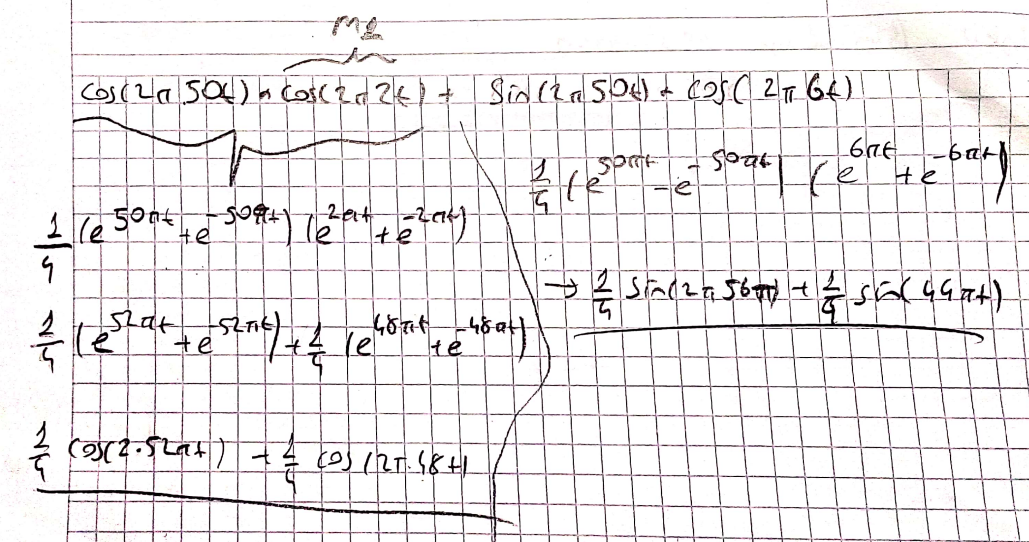 m1
cos(2π 50t) * cos(2π 2t) + sin(2π 50t) + cos( 2π 6t)
1/4 (e^50πt + e^-50πt) (e^2πt + e^-2πt)
1/4 (e^52πt + e^-52πt) + 1/4 (e^48πt + e^-48πt)
1/4 cos(2·52πt) + 1/4 cos(2π·48t)
1/4 (e^50πt - e^-50πt) (e^6πt + e^-6πt)
→ 1/4 sin(2π 56π) + 1/4 sin(44πt)